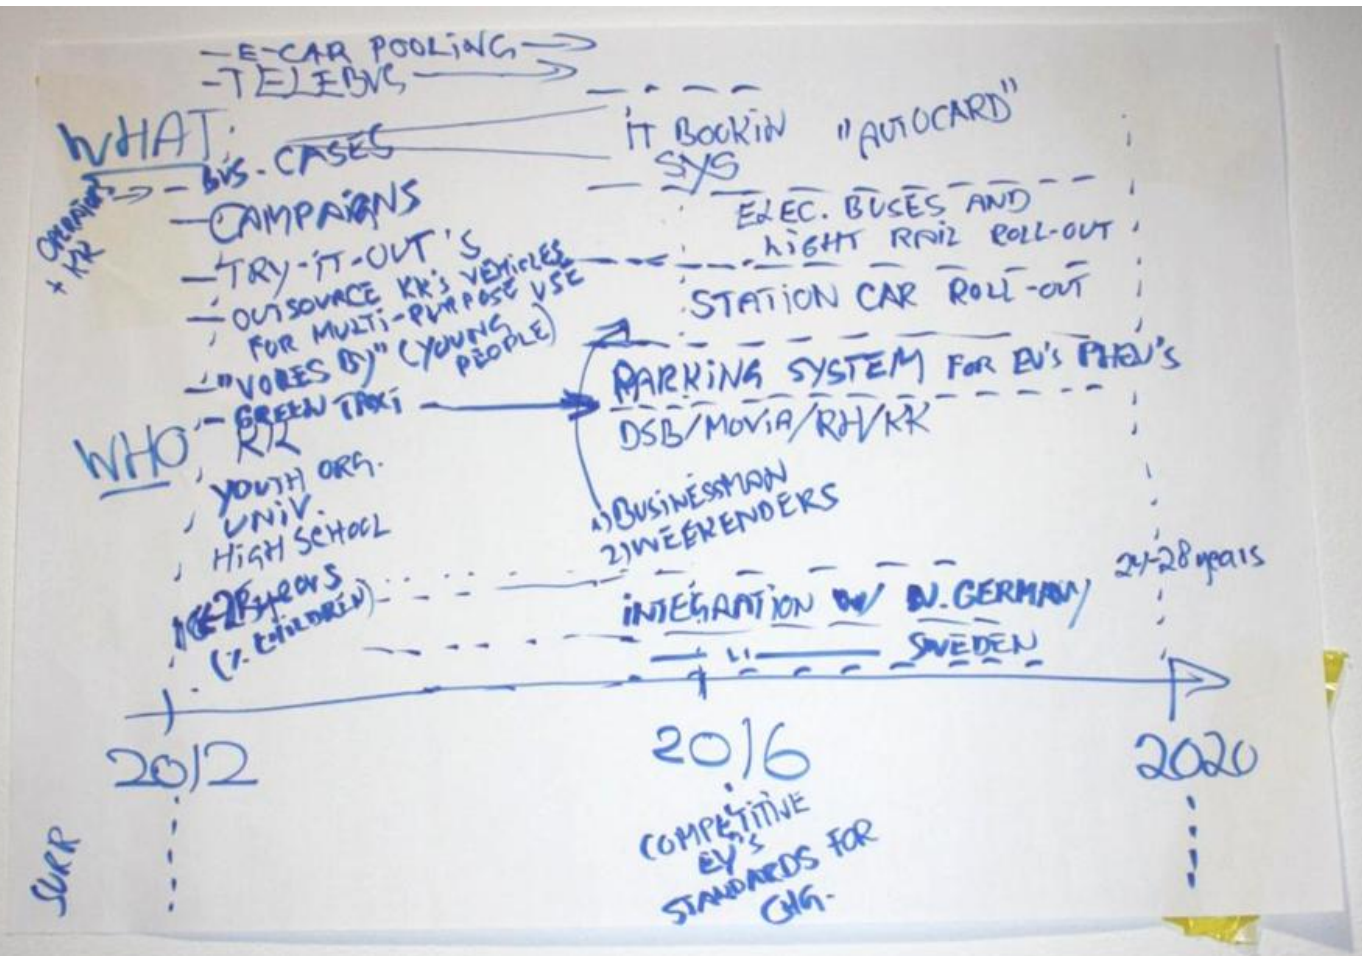 - E-CAR POOLING
- TELEBUS
WHAT:
- BUS. CASES
+ KK
- CAMPAIGNS
- TRY-IT-OUT'S
- OUTSOURCE KK's VEHICLES
FOR MULTI-PURPOSE USE
- "VORES BY" (YOUNG
PEOPLE)
- GREEN TAXI
WHO
KK
YOUTH ORG.
UNIV.
HIGH SCHOOL
years
(% CHILDREN)
IT BOOKIN
SYS
"AUTOCARD"
ELEC. BUSES AND
LIGHT RAIL ROLL-OUT
STATION CAR ROLL-OUT
PARKING SYSTEM FOR EV's PHEV's
DSB/MOVIA/RH/KK
1) BUSINESSMAN
2) WEEKENDERS
24-28 years
INTEGRATION W/ N. GERMANY
— 11 — SWEDEN
2012
2016
2020
SURR
COMPETITIVE
EV's
STANDARDS FOR
CHG.